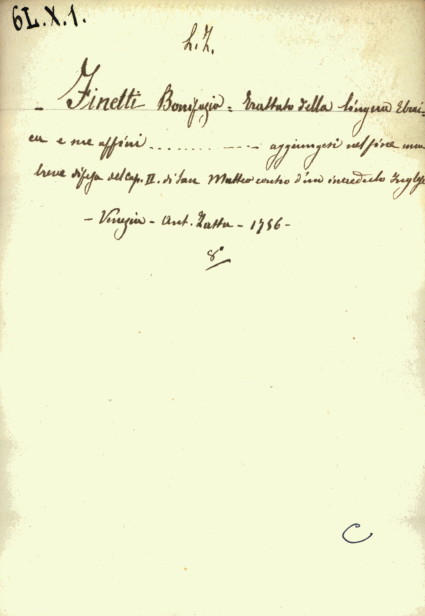 6L.X.1.
h.Z.
- Finetti Bonifazio = Trattato della lingua Ebrai-
ca e sue affini ............ - aggiungesi nel fine una
breve difesa del cap. II. di San Matteo contro d'un incredulo Inglese
- Venezia - Ant. Zatta - 1756 -
8°
C